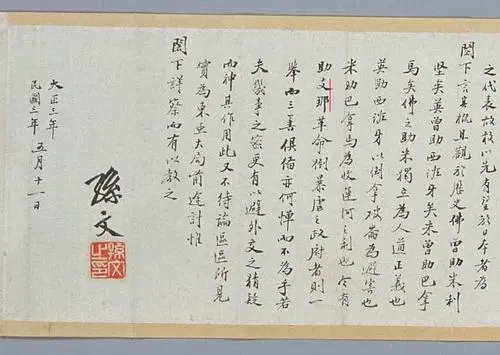 之代表故敢以先有望於日本者為
閣下言其概且觀於歷史佛曾助米利
堅矣英曾助西班牙矣米曾助巴拿
馬矣佛之助米獨立為人道正義也
英助西班牙以倒拿破崙為避害也
米助巴拿馬為收運河之利也今有
助支那革命倒暴虐之政府者則一
舉而三善俱備亦何憚而不為乎若
夫幾事之密更有以避外交之猜疑
而神其作用此又不待論區區所見
實為東亞大局前途計惟
閣下詳察而有以教之
孫文
孫文之印
大正三年
民國三年 五月十一日